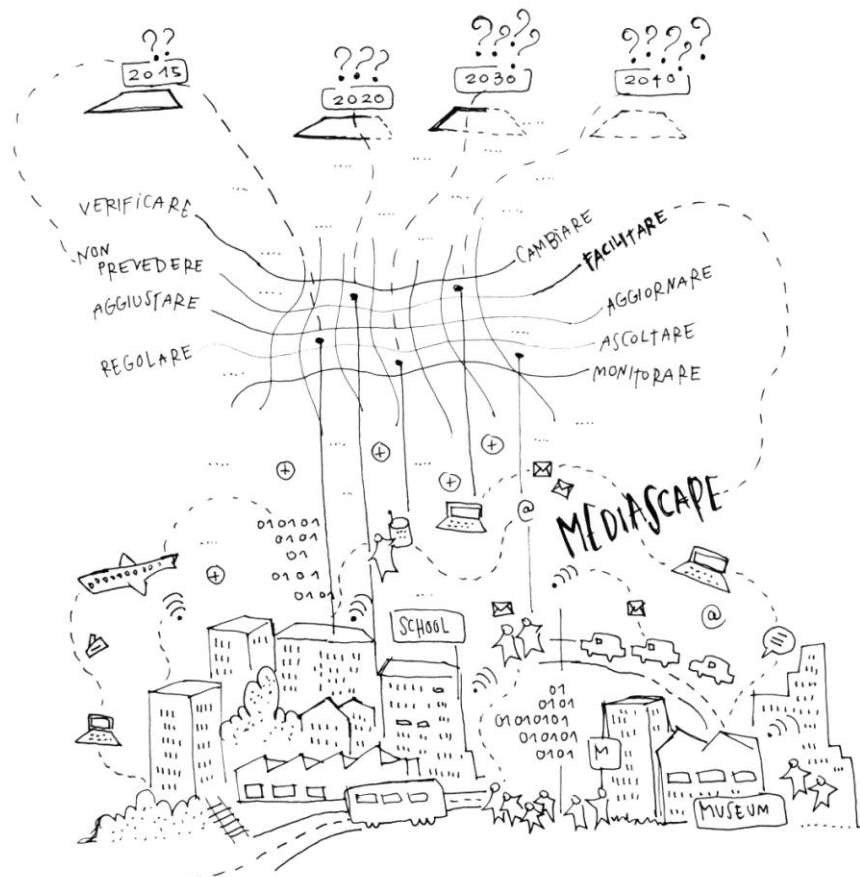 ??
2015
???
2020
?????
2030
?????
2040
VERIFICARE
NON
PREVEDERE
AGGIUSTARE
REGOLARE
CAMBIARE
FACILITARE
AGGIORNARE
ASCOLTARE
MONITORARE
MEDIASCAPE
@
0101 01
0101
01
01 01
0101
SCHOOL
@
01
0101
01010101
010101
0101
M
MUSEUM